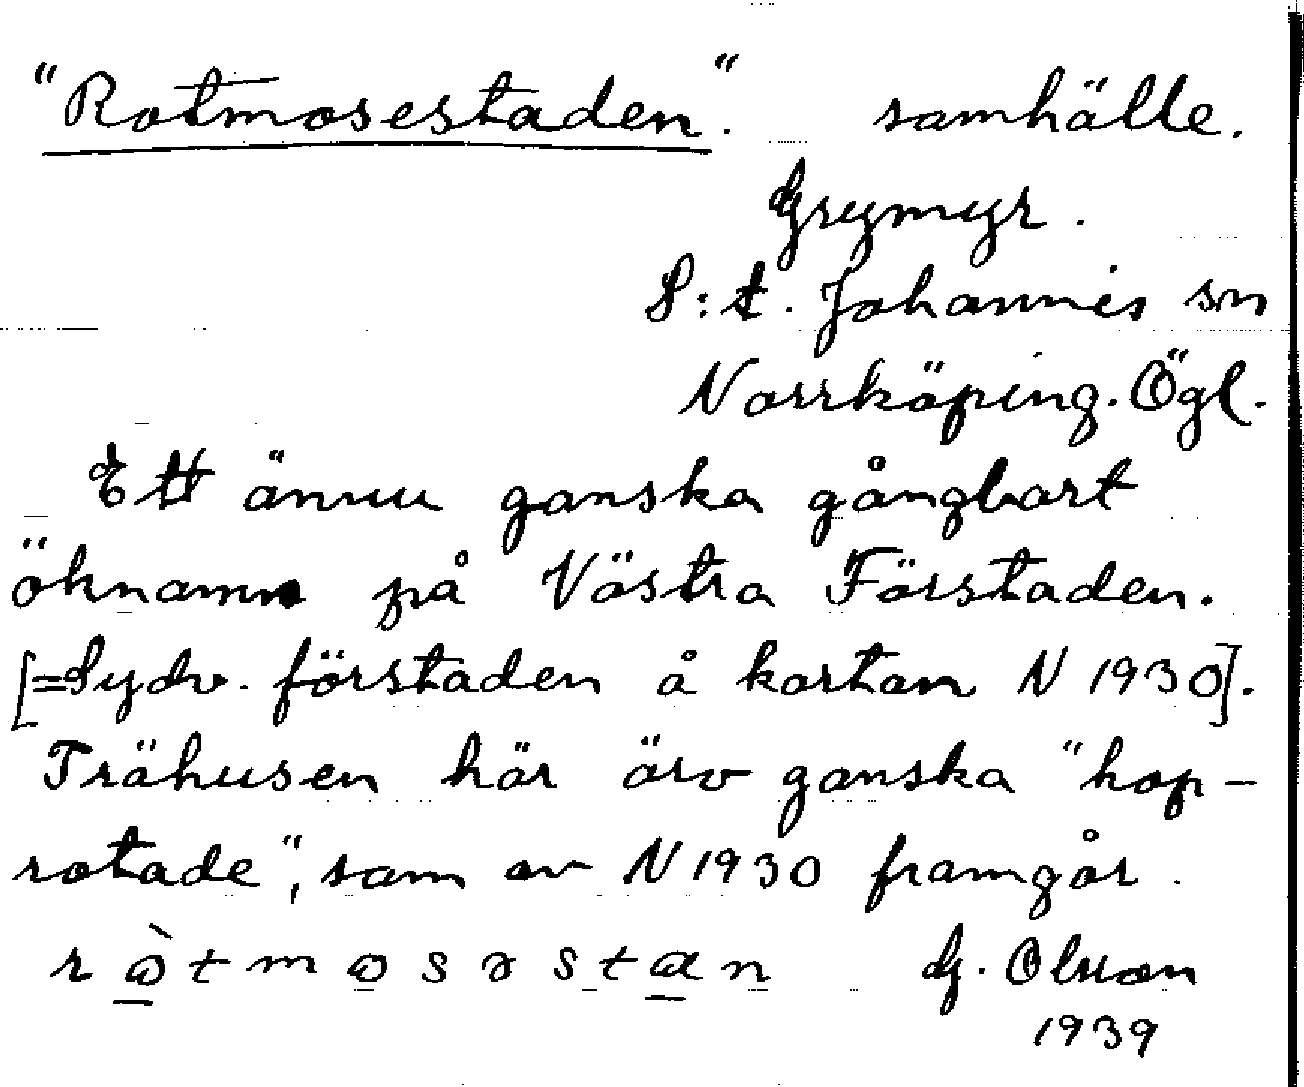 "Rotmosestaden". samhälle.
Grymyr.
S:t. Johannis sn
Norrköping. Ögl.
Ett ännu ganska gångbart
öknamn på Västra Förstaden.
[=Sydv. förstaden å kartan N 1930].
Trähusen här äro ganska "hop-
rotade", som av N 1930 framgår.
ròtmosəstan G. Olsson
1939